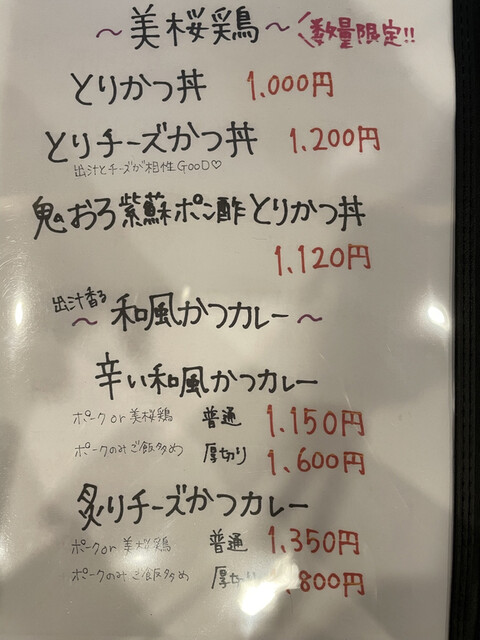 ～美桜鶏～ 数量限定!!
とりかつ丼 1.000円
とりチーズかつ丼 1.200円
出汁とチーズが相性GOOD♡
鬼おろ紫蘇ポン酢とりかつ丼
1.120円
出汁香る
～和風かつカレー～
辛い和風かつカレー
ポークor美桜鶏 普通 1.150円
ポークのみご飯多め 厚切り 1.600円
炙りチーズかつカレー
ポークor美桜鶏 普通 1.350円
ポークのみご飯多め 厚切り .800円